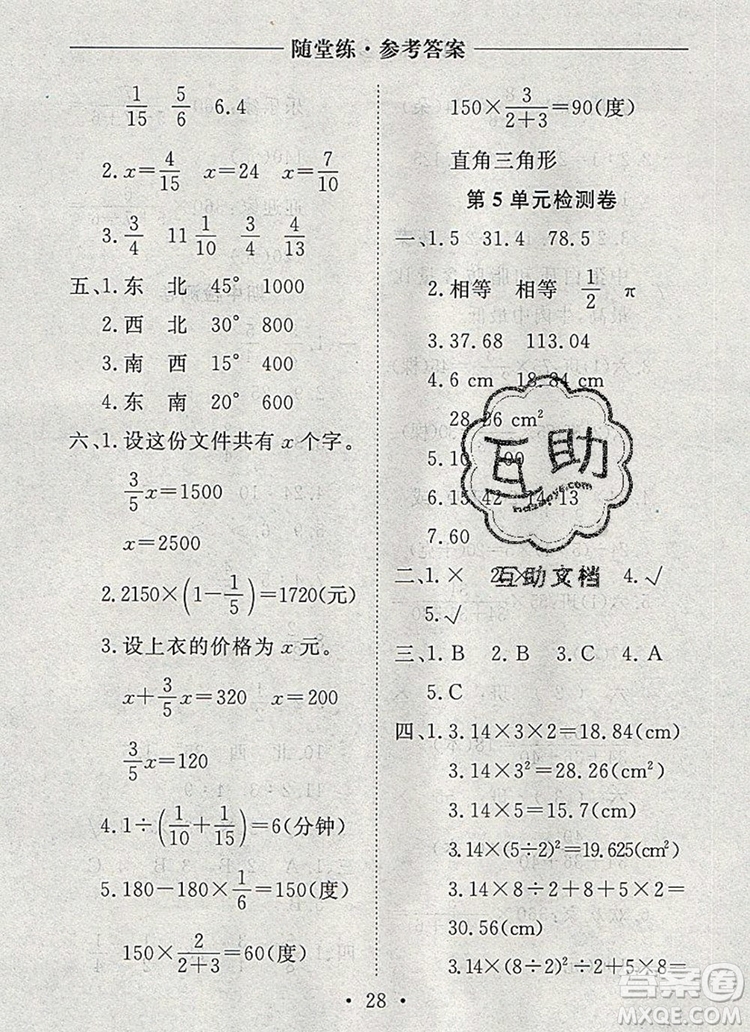 随堂练·参考答案
1/15 5/6 6.4
2.x=4/15 x=24 x=7/10
3.3/4 11 1/10 3/4 4/13
五、1.东 北 45° 1000
2.西 北 30° 800
3.南 西 15° 400
4.东 南 20° 600
六、1.设这份文件共有 x 个字。
3/5x=1500
x=2500
2.2150×(1−1/5)=1720(元)
3.设上衣的价格为 x 元。
x+3/5x=320 x=200
3/5x=120
4.1÷(1/10+1/15)=6(分钟)
5.180−180×1/6=150(度)
150×2/(2+3)=60(度)
150×3/(2+3)=90(度)
直角三角形
第 5 单元检测卷
一、1.5 31.4 78.5
2.相等 相等 1/2 π
3.37.68 113.04
4.6 cm 18.84 cm
28.26 cm²
5.10
6.15.42 14.13
7.60
二、1.× 2.× 4.√
5.√
三、1.B 2.B 3.C 4.A
5.C
四、1.3.14×3×2=18.84(cm)
3.14×3²=28.26(cm)
3.14×5=15.7(cm)
3.14×(5÷2)²=19.625(cm)
3.14×8÷2+8+5×2=
30.56(cm)
3.14×(8÷2)²÷2+5×8=
28
互助
互助文档
MXQE.COM